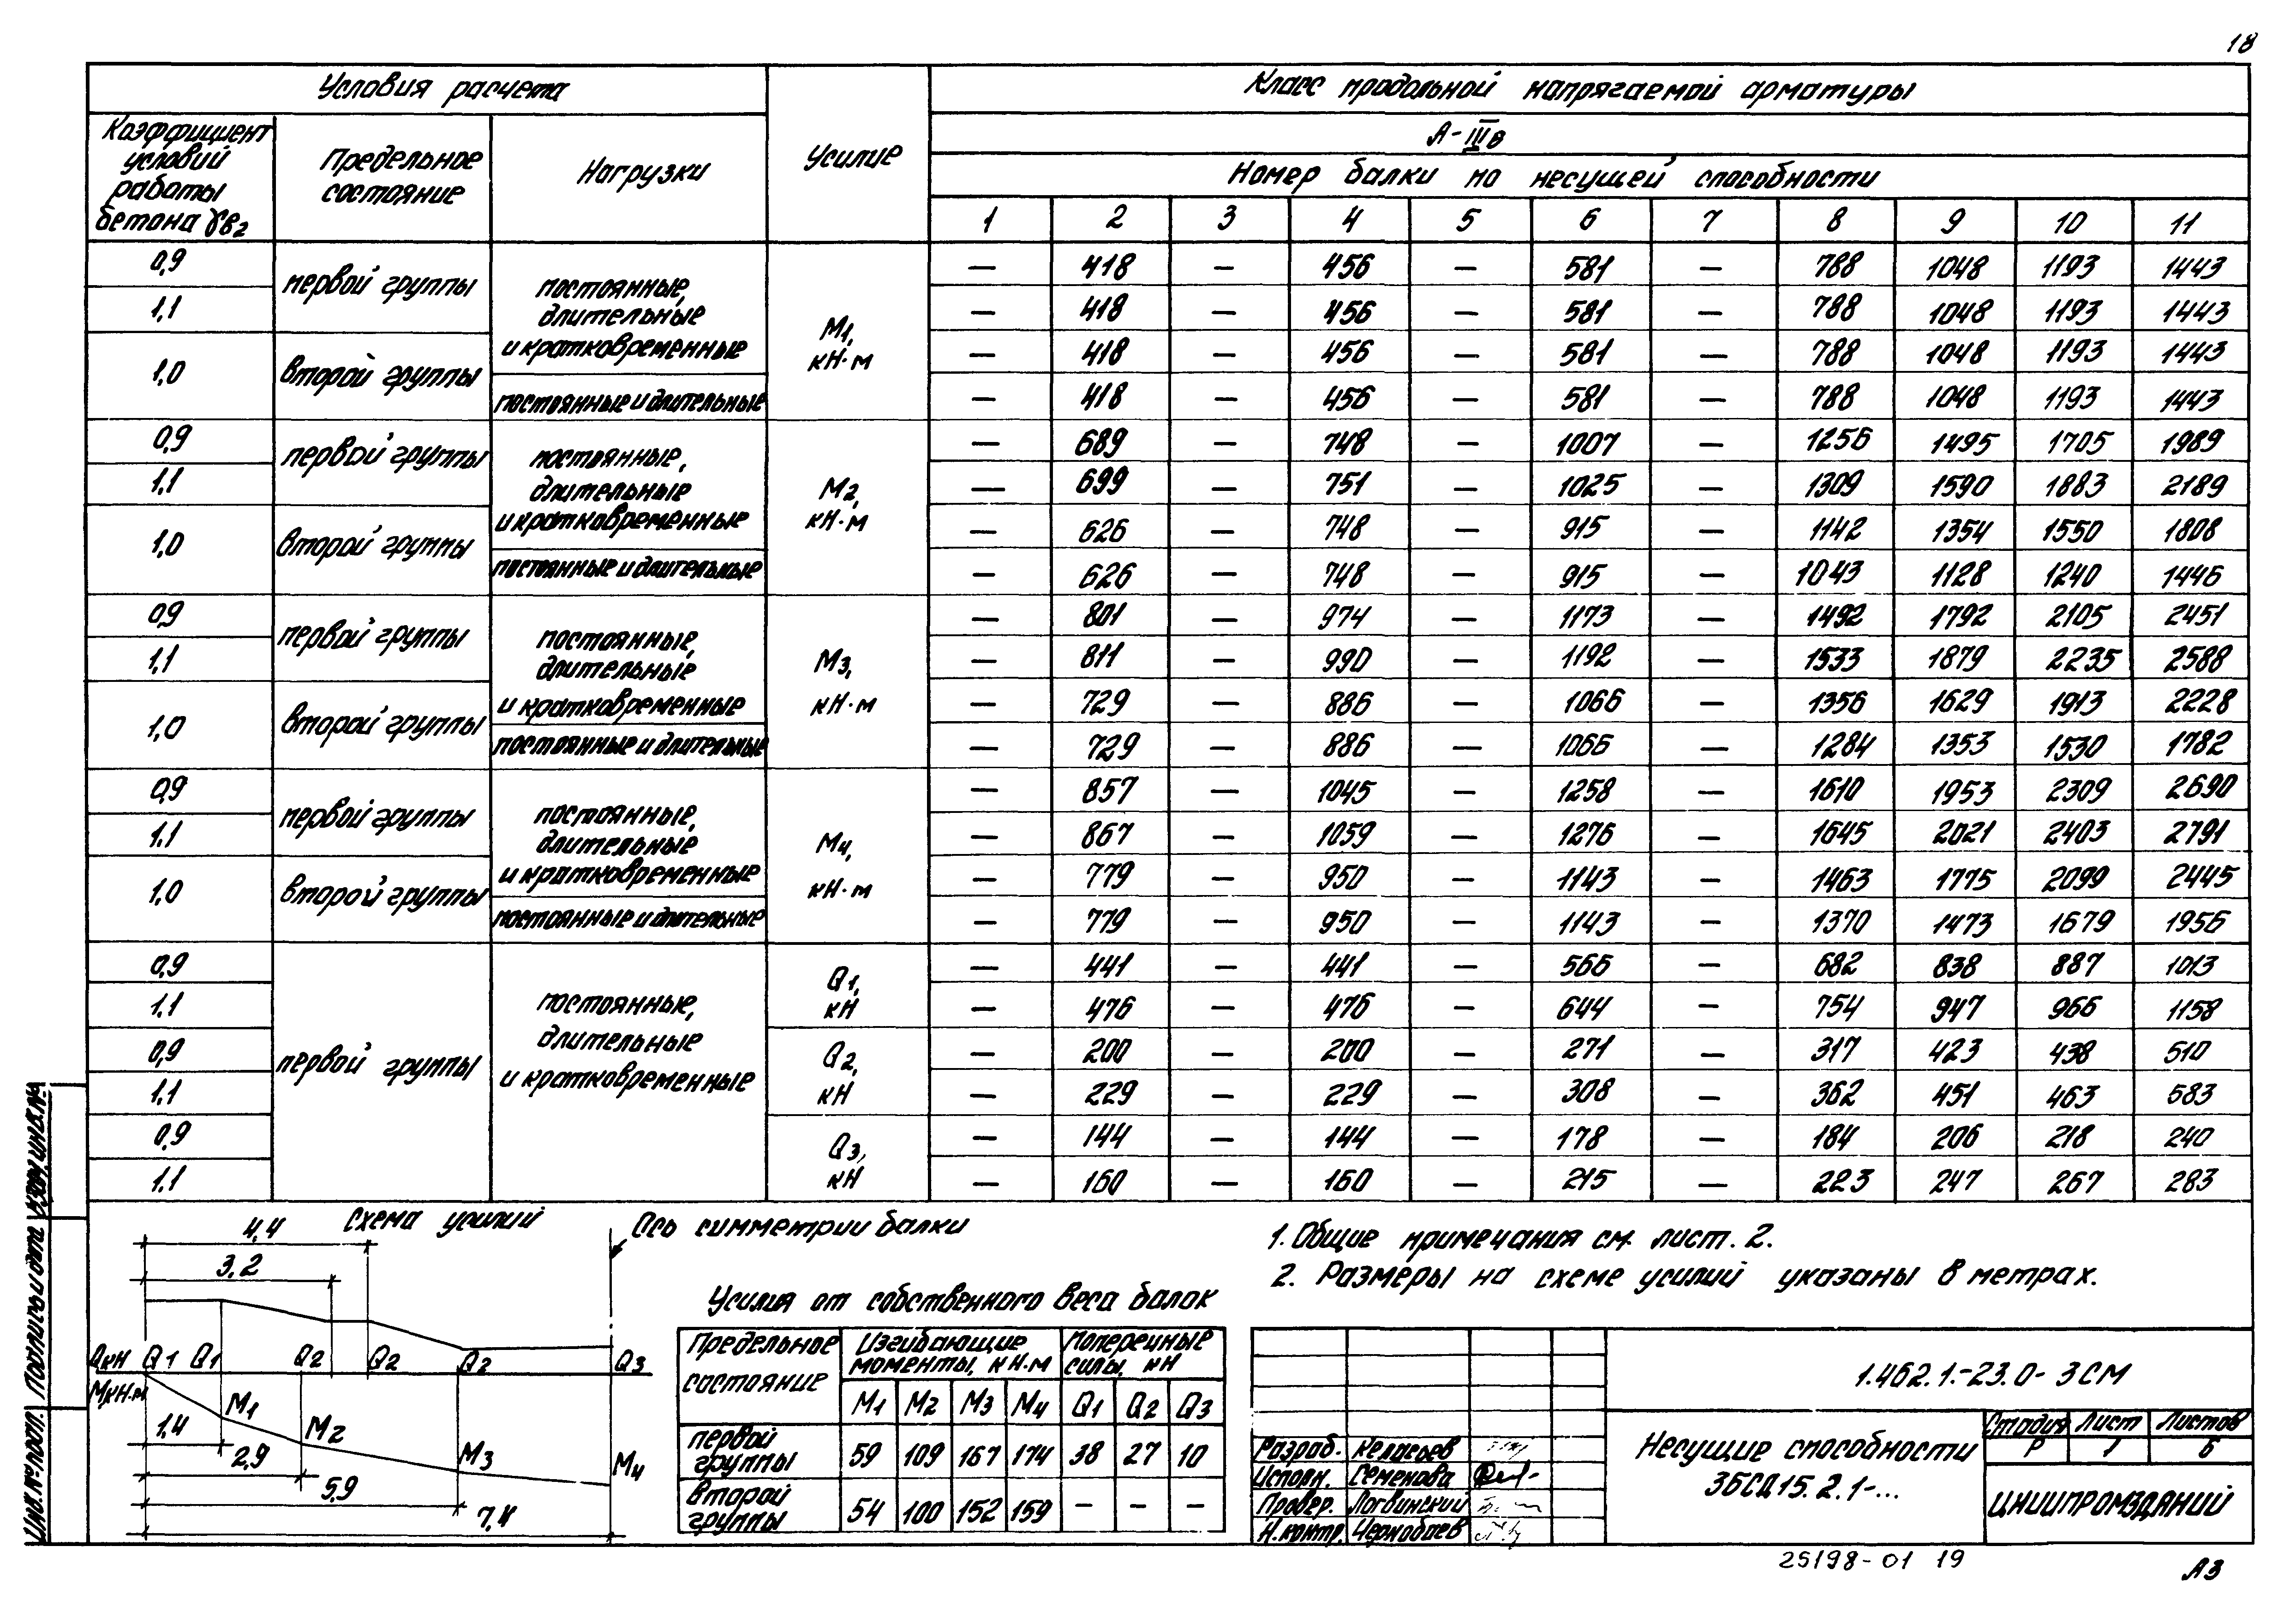 18
Условия расчета
Усилие
Класс продольной напрягаемой арматуры
Коэффициент условий работы бетона γв2
Предельное состояние
Нагрузки
А-IIIв
Номер балки по несущей способности
1 2 3 4 5 6 7 8 9 10 11
0,9 первой группы постоянные, длительные и кратковременные М1, кН·м — 418 — 456 — 581 — 788 1048 1193 1443
1,1 — 418 — 456 — 581 — 788 1048 1193 1443
1,0 второй группы — 418 — 456 — 581 — 788 1048 1193 1443
постоянные и длительные — 418 — 456 — 581 — 788 1048 1193 1443
0,9 первой группы постоянные, длительные и кратковременные М2, кН·м — 689 — 748 — 1007 — 1256 1495 1705 1989
1,1 — 699 — 751 — 1025 — 1309 1590 1883 2189
1,0 второй группы — 626 — 748 — 915 — 1142 1354 1550 1808
постоянные и длительные — 626 — 748 — 915 — 1043 1128 1240 1446
0,9 первой группы постоянные, длительные и кратковременные М3, кН·м — 801 — 974 — 1173 — 1492 1792 2105 2451
1,1 — 811 — 990 — 1192 — 1533 1879 2235 2588
1,0 второй группы — 729 — 886 — 1066 — 1356 1629 1913 2228
постоянные и длительные — 729 — 886 — 1066 — 1284 1353 1530 1782
0,9 первой группы постоянные, длительные и кратковременные М4, кН·м — 857 — 1045 — 1258 — 1610 1953 2309 2690
1,1 — 867 — 1059 — 1276 — 1645 2021 2403 2791
1,0 второй группы — 779 — 950 — 1143 — 1463 1775 2099 2445
постоянные и длительные — 779 — 950 — 1143 — 1370 1473 1679 1956
0,9 первой группы постоянные, длительные и кратковременные Q1, кН — 441 — 441 — 566 — 682 838 887 1013
1,1 — 476 — 476 — 644 — 754 947 966 1158
0,9 Q2, кН — 200 — 200 — 271 — 317 423 438 510
1,1 — 229 — 229 — 308 — 362 451 463 583
0,9 Q3, кН — 144 — 144 — 178 — 184 206 218 240
1,1 — 160 — 160 — 215 — 223 247 267 283
Схема усилий
Ось симметрии балки
4,4
3,2
QкН Q1 Q1 Q2 Q2 Q2 Q3
МкН·м
М1 М2 М3 М4
1,4
2,9
5,9
7,4
1. Общие примечания см. лист. 2.
2. Размеры на схеме усилий указаны в метрах.
Усилия от собственного веса балок
Предельное состояние
Изгибающие моменты, кН·м
Поперечные силы, кН
М1 М2 М3 М4 Q1 Q2 Q3
первой группы 59 109 167 174 38 27 10
второй группы 54 100 152 159 — — —
1.462.1.-23.0- 3СМ
Разраб. Келасьев
Исполн. Семенова
Провер. Логвинский
Н.контр. Чернобаев
Несущие способности
3БСД15.2.1-...
Стадия Лист Листов
Р 1 6
ЦНИИПРОМЗДАНИЙ
25198-01 19
А3
Инв.№ подл. Подпись и дата Взам.инв.№